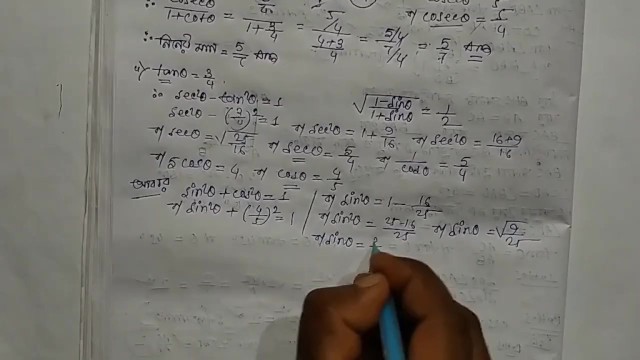 ∴ cosecθ/(1+cotθ) = (5/4)/(1+3/4) = (5/4)/((4+3)/4) = (5/4)/(7/4) = 5/7 Ans
বা cosecθ = 5/4
∴ নির্ণেয় মান = 5/7 Ans
tanθ = 3/4
∴ sec²θ - tan²θ = 1
√((1-sinθ)/(1+sinθ)) = 1/2
sec²θ - (3/4)² = 1
বা sec²θ = 1 + 9/16 বা sec²θ = (16+9)/16
বা secθ = √(25/16) বা secθ = 5/4 বা 1/cosθ = 5/4
বা 5cosθ = 4, বা cosθ = 4/5
আবার sin²θ + cos²θ = 1
বা sin²θ + (4/5)² = 1
বা sin²θ = 1 - 16/25
বা sin²θ = (25-16)/25 বা sinθ = √(9/25)
বা sinθ =